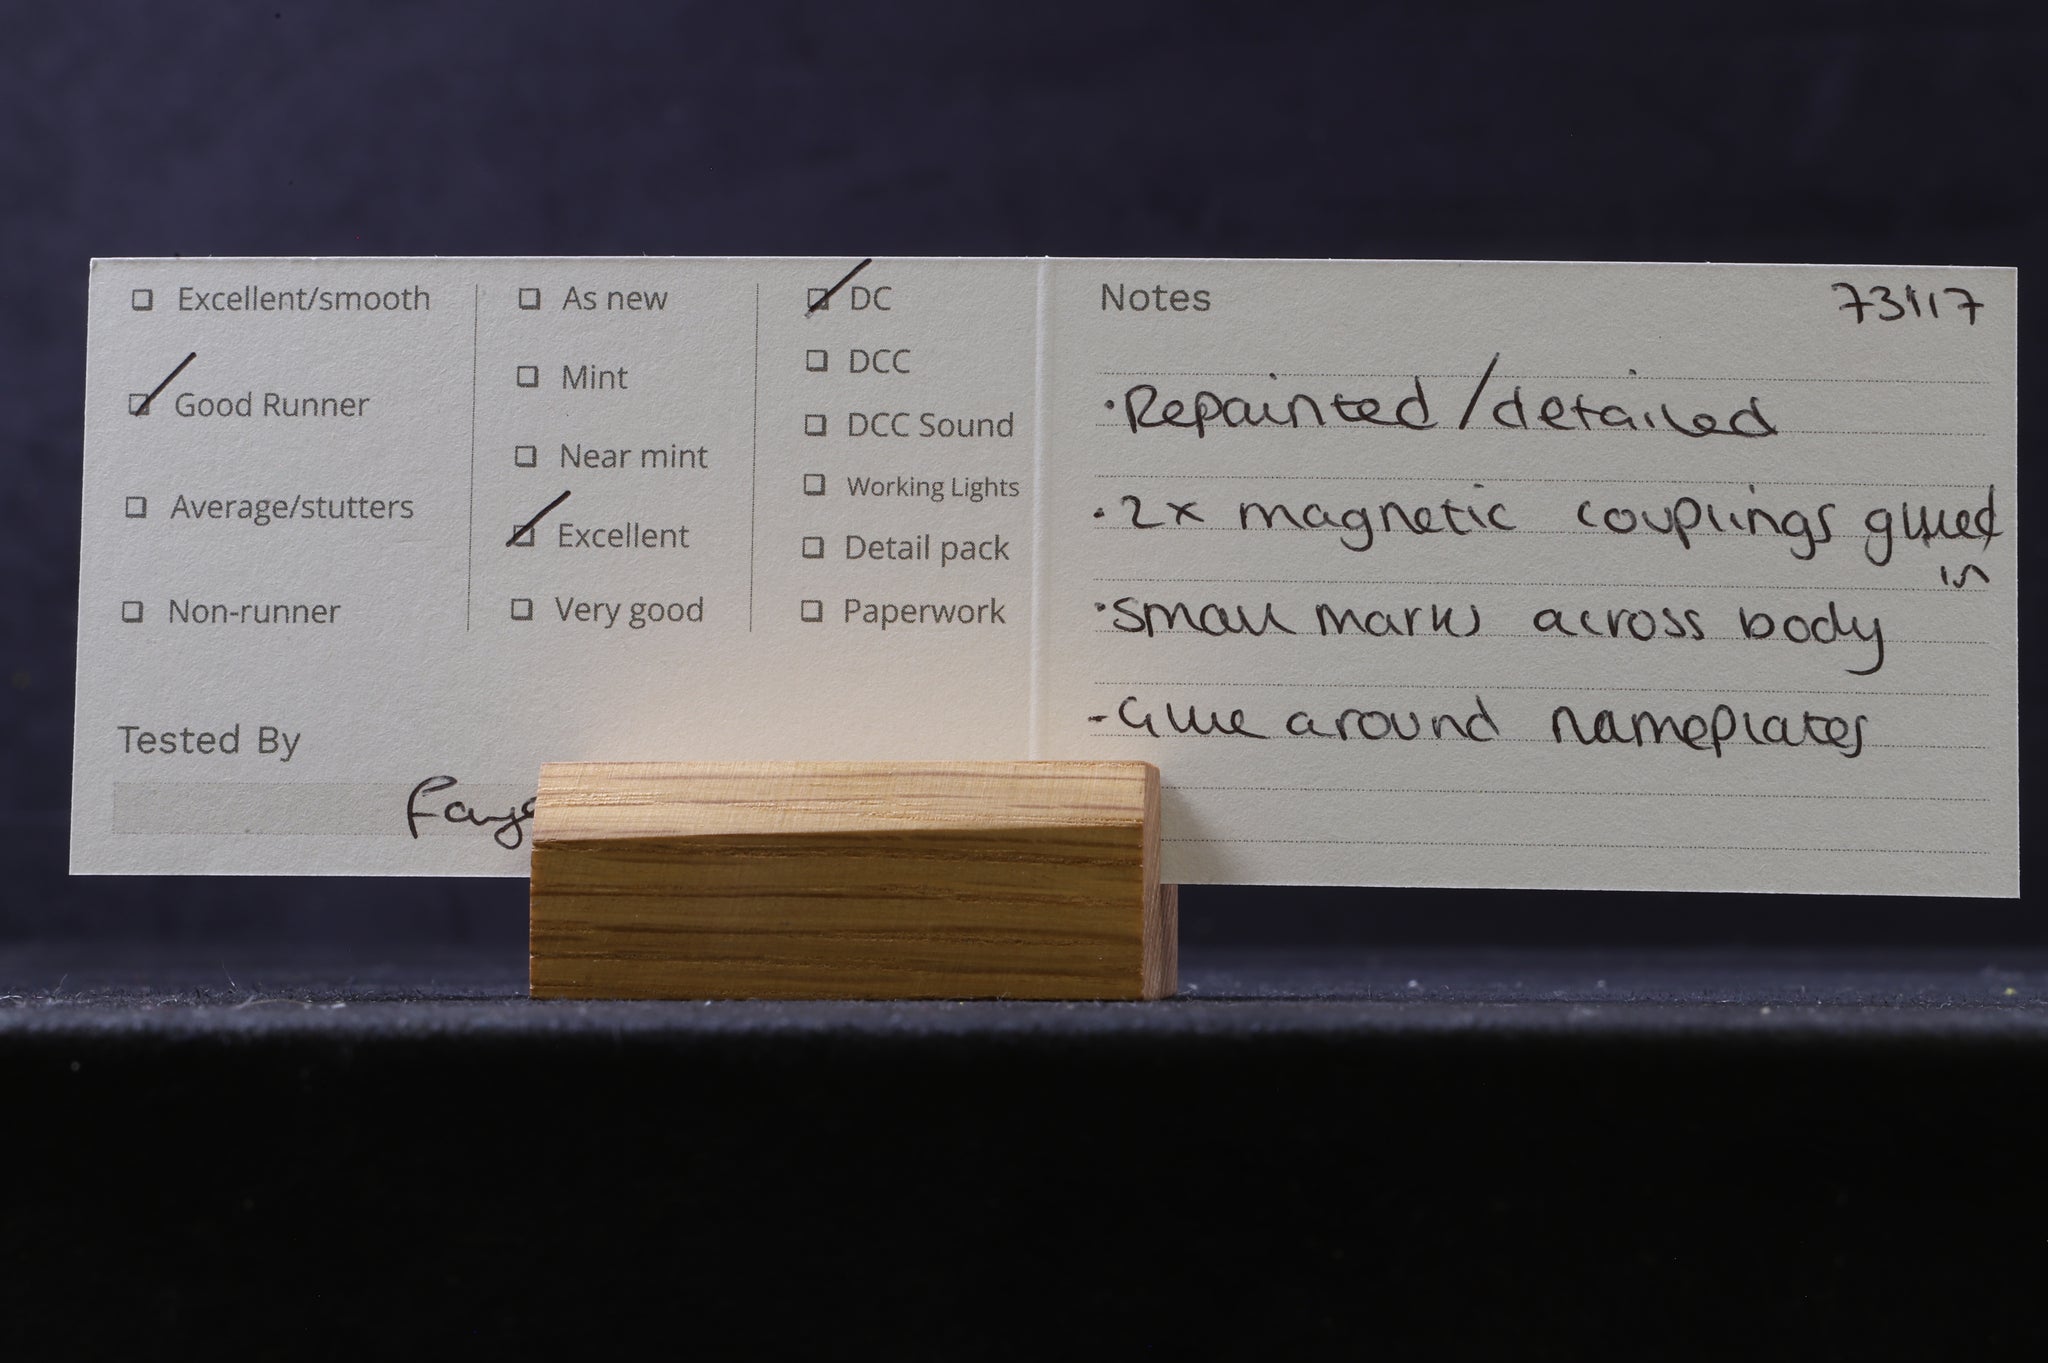 Excellent/smooth
Good Runner
Average/stutters
Non-runner
As new
Mint
Near mint
Excellent
Very good
DC
DCC
DCC Sound
Working Lights
Detail pack
Paperwork
Tested By
Faye
Notes
73117
·Repainted/detailed
·2x magnetic couplings glued
in
·small marks across body
-Glue around nameplates